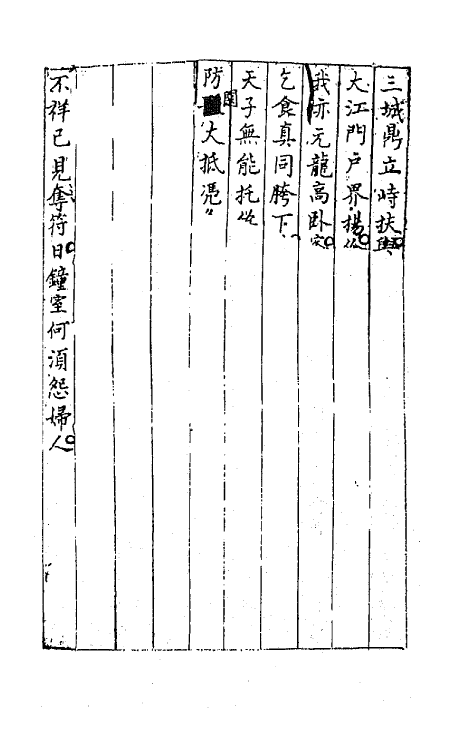 三城鼎立峙扶輿
大江門戶界揚
我亦元龍高卧
乞食真同胯下
天子無能托
防圍大抵憑
不祥已見奪符日鐘室何須怨婦人